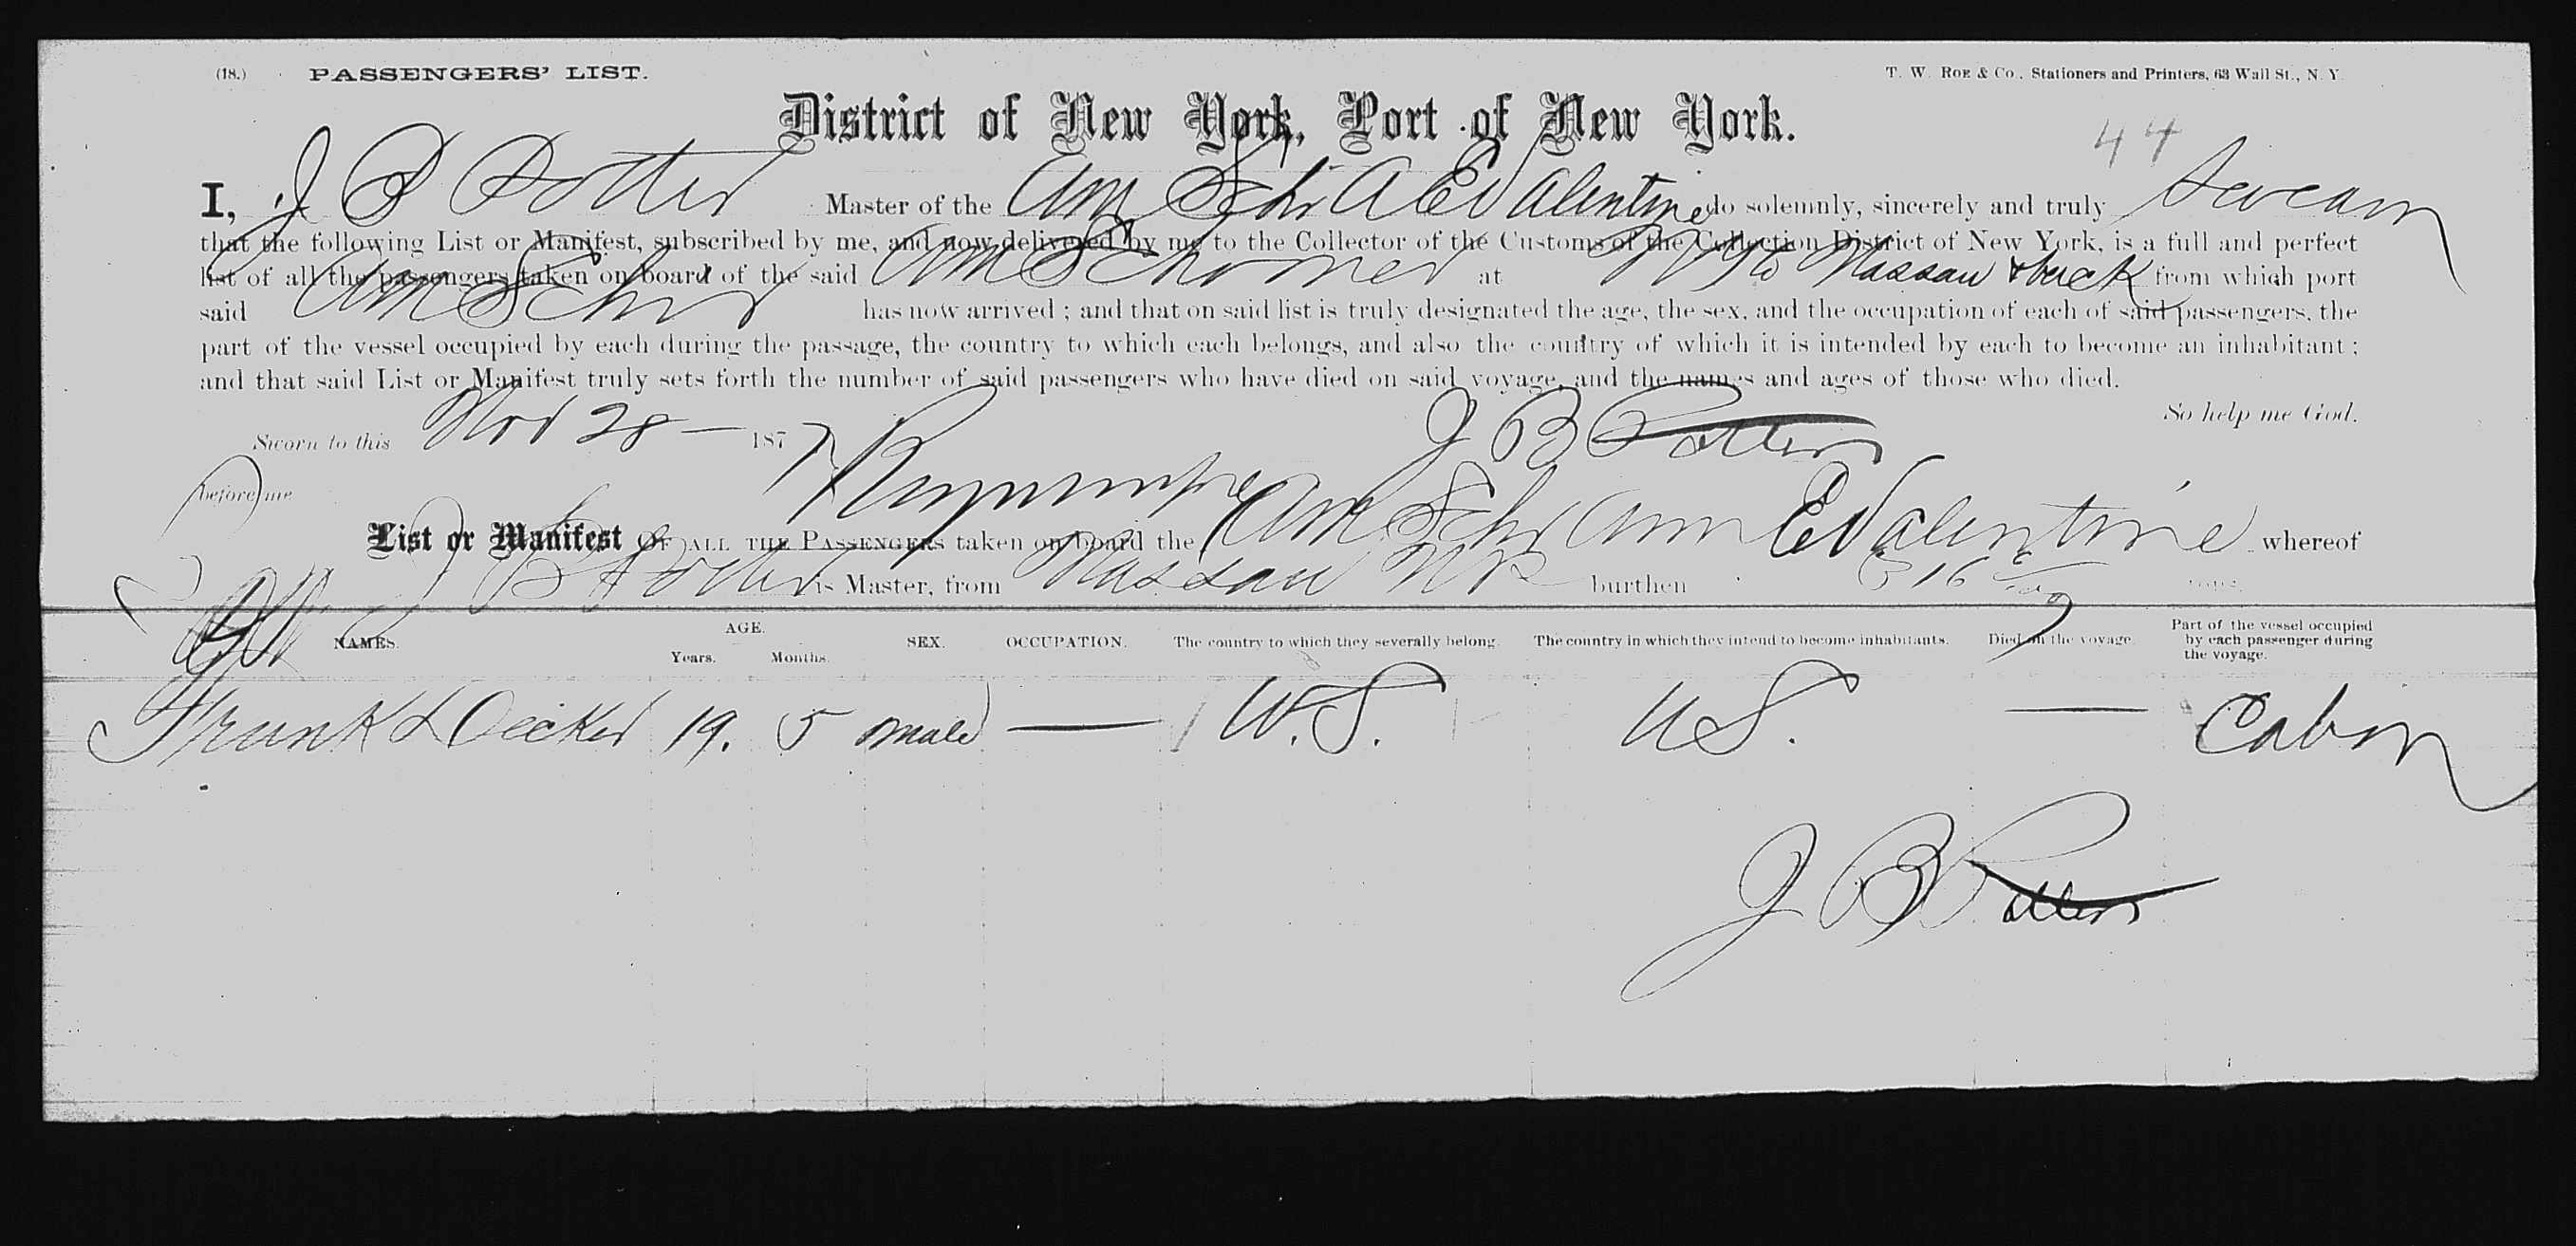 (18.) PASSENGERS' LIST. T. W. ROE & Co., Stationers and Printers, 63 Wall St., N. Y.
District of New York, Port of New York.
44
I, J B Potter Master of the Am Schr A E Valentine do solemnly, sincerely and truly Swear
that the following List or Manifest, subscribed by me, and now delivered by me to the Collector of the Customs of the Collection District of New York, is a full and perfect
list of all the passengers taken on board of the said Am Schooner at NY to Nassau & back from which port
said Am Schr has now arrived; and that on said list is truly designated the age, the sex, and the occupation of each of said passengers, the
part of the vessel occupied by each during the passage, the country to which each belongs, and also the country of which it is intended by each to become an inhabitant;
and that said List or Manifest truly sets forth the number of said passengers who have died on said voyage, and the names and ages of those who died.
So help me God.
Sworn to this Nov 28 — 1877 J B Potter
before me
List or Manifest OF ALL THE PASSENGERS taken on board the Am Schr Ann E Valentine whereof
J B Potter is Master, from Nassau NP burthen tons.
NAMES. AGE. Years. Months. SEX. OCCUPATION. The country to which they severally belong. The country in which they intend to become inhabitants. Died on the voyage. Part of the vessel occupied by each passenger during the voyage.
Frank L Decker 19. 5 male — U.S. U S. — Cabin
J B Potter